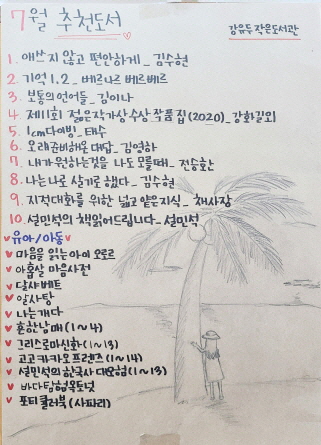 7월 추천도서
강유두 작은도서관
1. 애쓰지 않고 편안하게 _ 김수현
2. 기억 1.2 _ 베르나르 베르베르
3. 보통의 언어들 _ 김이나
4. 제11회 젊은작가상 수상 작품집(2020) _ 강화길외
5. 1cm 다이빙 _ 태수
6. 오래 준비해온 대답 _ 김영하
7. 내가 원하는 것을 나도 모를 때 _ 전승환
8. 나는 나로 살기로 했다 _ 김수현
9. 지적대화를 위한 넓고 얕은 지식 _ 채사장
10. 설민석의 책읽어드립니다 _ 설민석
♥유아/아동♥
♥마음을 읽는 아이 오로르
♥아홉살 마음사전
♥달샤베트
♥알사탕
♥나는 개다
♥흔한남매 (1~4)
♥그리스로마신화 (1~13)
♥고고카카오프렌즈 (1~14)
♥설민석의 한국사 대모험 (1~13)
♥바다탐험대 옥토넛
♥포티 컬러북 (사파리)